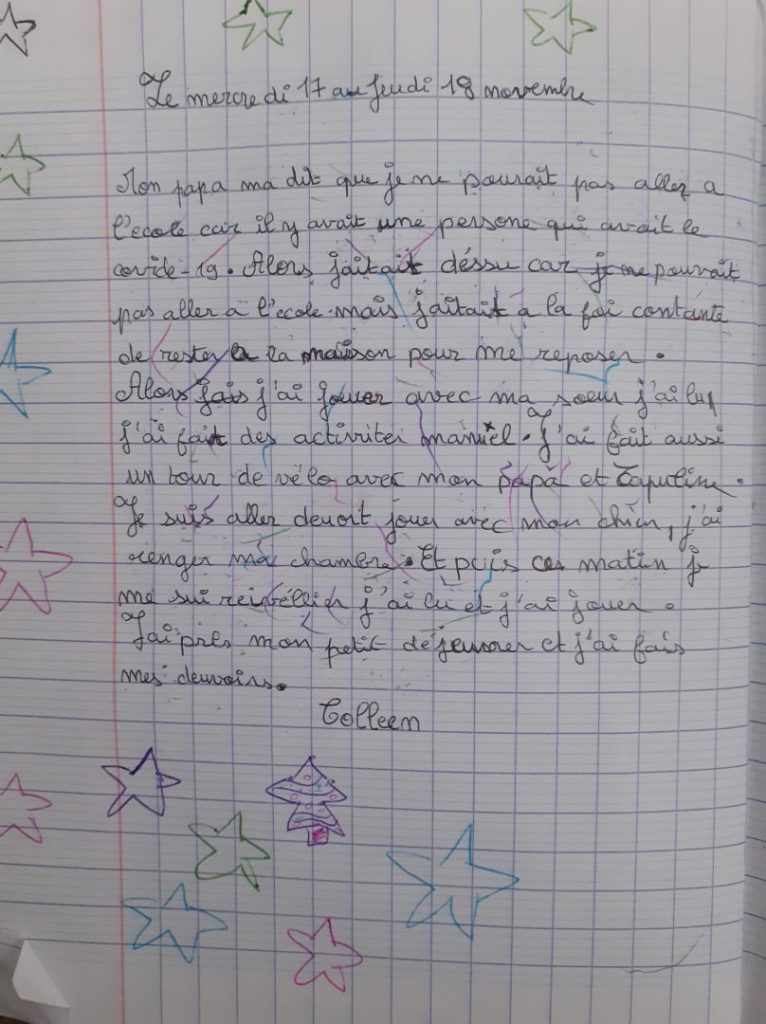 Le mercredi 17 au jeudi 18 novembre
Mon papa ma dit que je ne pourait pas aller a
l'ecole car il y avait une persone qui avait le
covide-19. Alors jaitait déssu car je ne pouvait
pas aller à l'école. mais jaitait a la foi contante
de rester a la maison pour me reposer.
Alors j'ai jouer avec ma soeur j'ai lu
j'ai fait des activitei manuel. J'ai fait aussi
un tour de vélo avec mon papa et Capucine.
Je suis aller devort jouer avec mon chien, j'ai
renger ma chambre. Et puis ce matin je
me sui reivellier j'ai lu et j'ai jouer.
J'ai près mon petit déjeuner et j'ai fais
mes devoirs.
Colleen